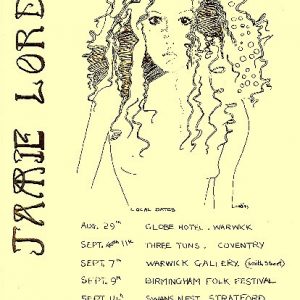 JAMIE LORD
LOCAL DATES
AUG. 29TH GLOBE HOTEL. WARWICK
SEPT. 4TH 11TH THREE TUNS. COVENTRY
SEPT. 7TH WARWICK GALLERY (Smith Street)
SEPT. 9TH BIRMINGHAM FOLK FESTIVAL
SEPT 14TH SWANS NEST. STRATFORD